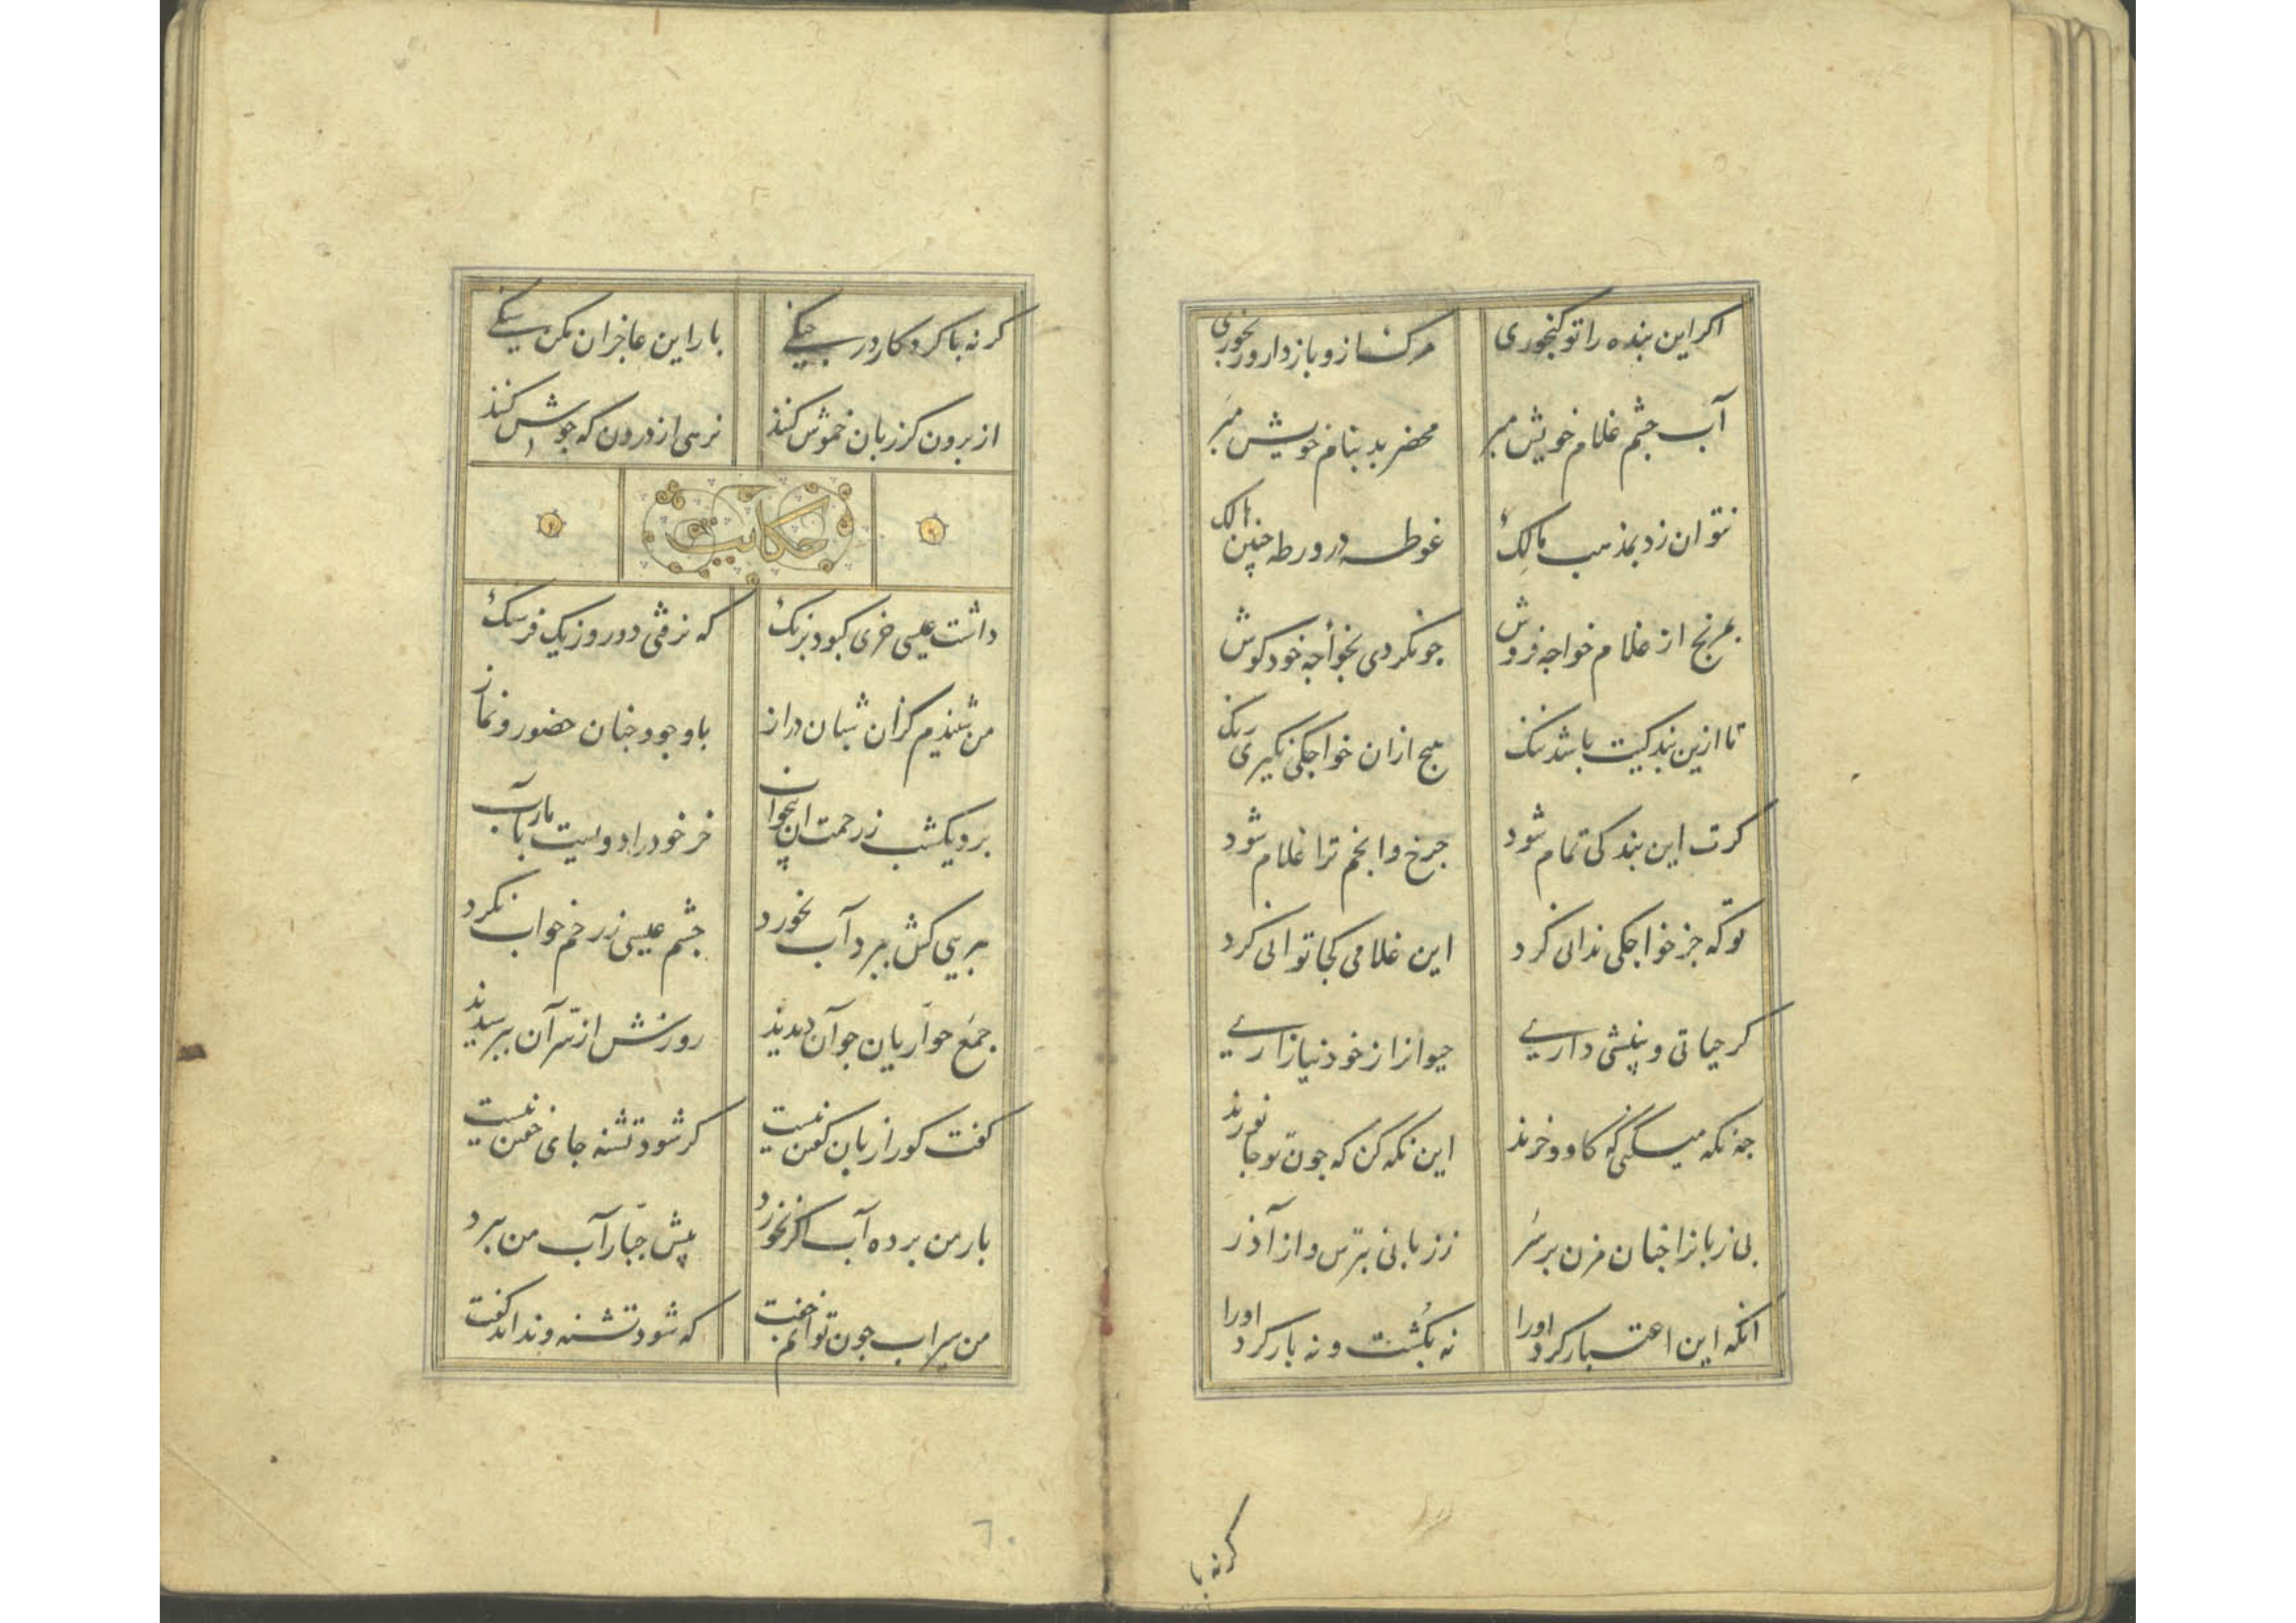 اکر این بنده را تو کنجوری
مرکش از و باز دار و رنجوری
آب چشم غلام خویش مبر
محضر بد بنام خویش مبر
نتوان زد بمذهب مالک
غوطه در ورطه چنین هالک
برنج از غلام خواجه فروش
چو نکردی بخواجه خود کوش
تا ازین بندکیت باشد ننک
هیچ ازان خواجکی نکیری رنک
کرت این بندکی تمام شود
چرخ و انجم ترا غلام شود
تو که جز خواجکی ندانی کرد
این غلامی کجا توانی کرد
کر حیاتی و بینشی داری
حیوانرا ز خود نیازاری
چه نکه میکنی که کاو و خرند
این نکه کن که چون تو جانورند
بی زبانرا چنان مزن بر سر
ز زبانی بترس و از آذر
انکه این اعتبار کرد اورا
نه بکشت و نه بار کرد اورا
کرنه با
کرنه با کردکار در جنکی
بار این عاجزان مکن سنکی
از برون کر زبان خموش کنند
ترسی از درون که جوش کنند
حکایت
داشت عیسی خری کبود برنک
که نرفتی دو روز یک فرسنک
من شنیدم کزان شبان دراز
با وجود چنان حضور و نماز
برد یکشب ز رحمت آن بیخواب
خر خود را دویست بار بآب
بر پی کش ببرد آب نخورد
چشم عیسی ز رحم خواب نکرد
جمع حواریان چو آن دیدند
روزش از سر آن بپرسیدند
کفت کورا زبان کفتن نیست
کر شود تشنه جای خفتن نیست
بار من برده آب اکر نخورد
پیش جبار آب من ببرد
من سیراب چون توانم خفت
که شود تشنه و نداند کفت
٦٠